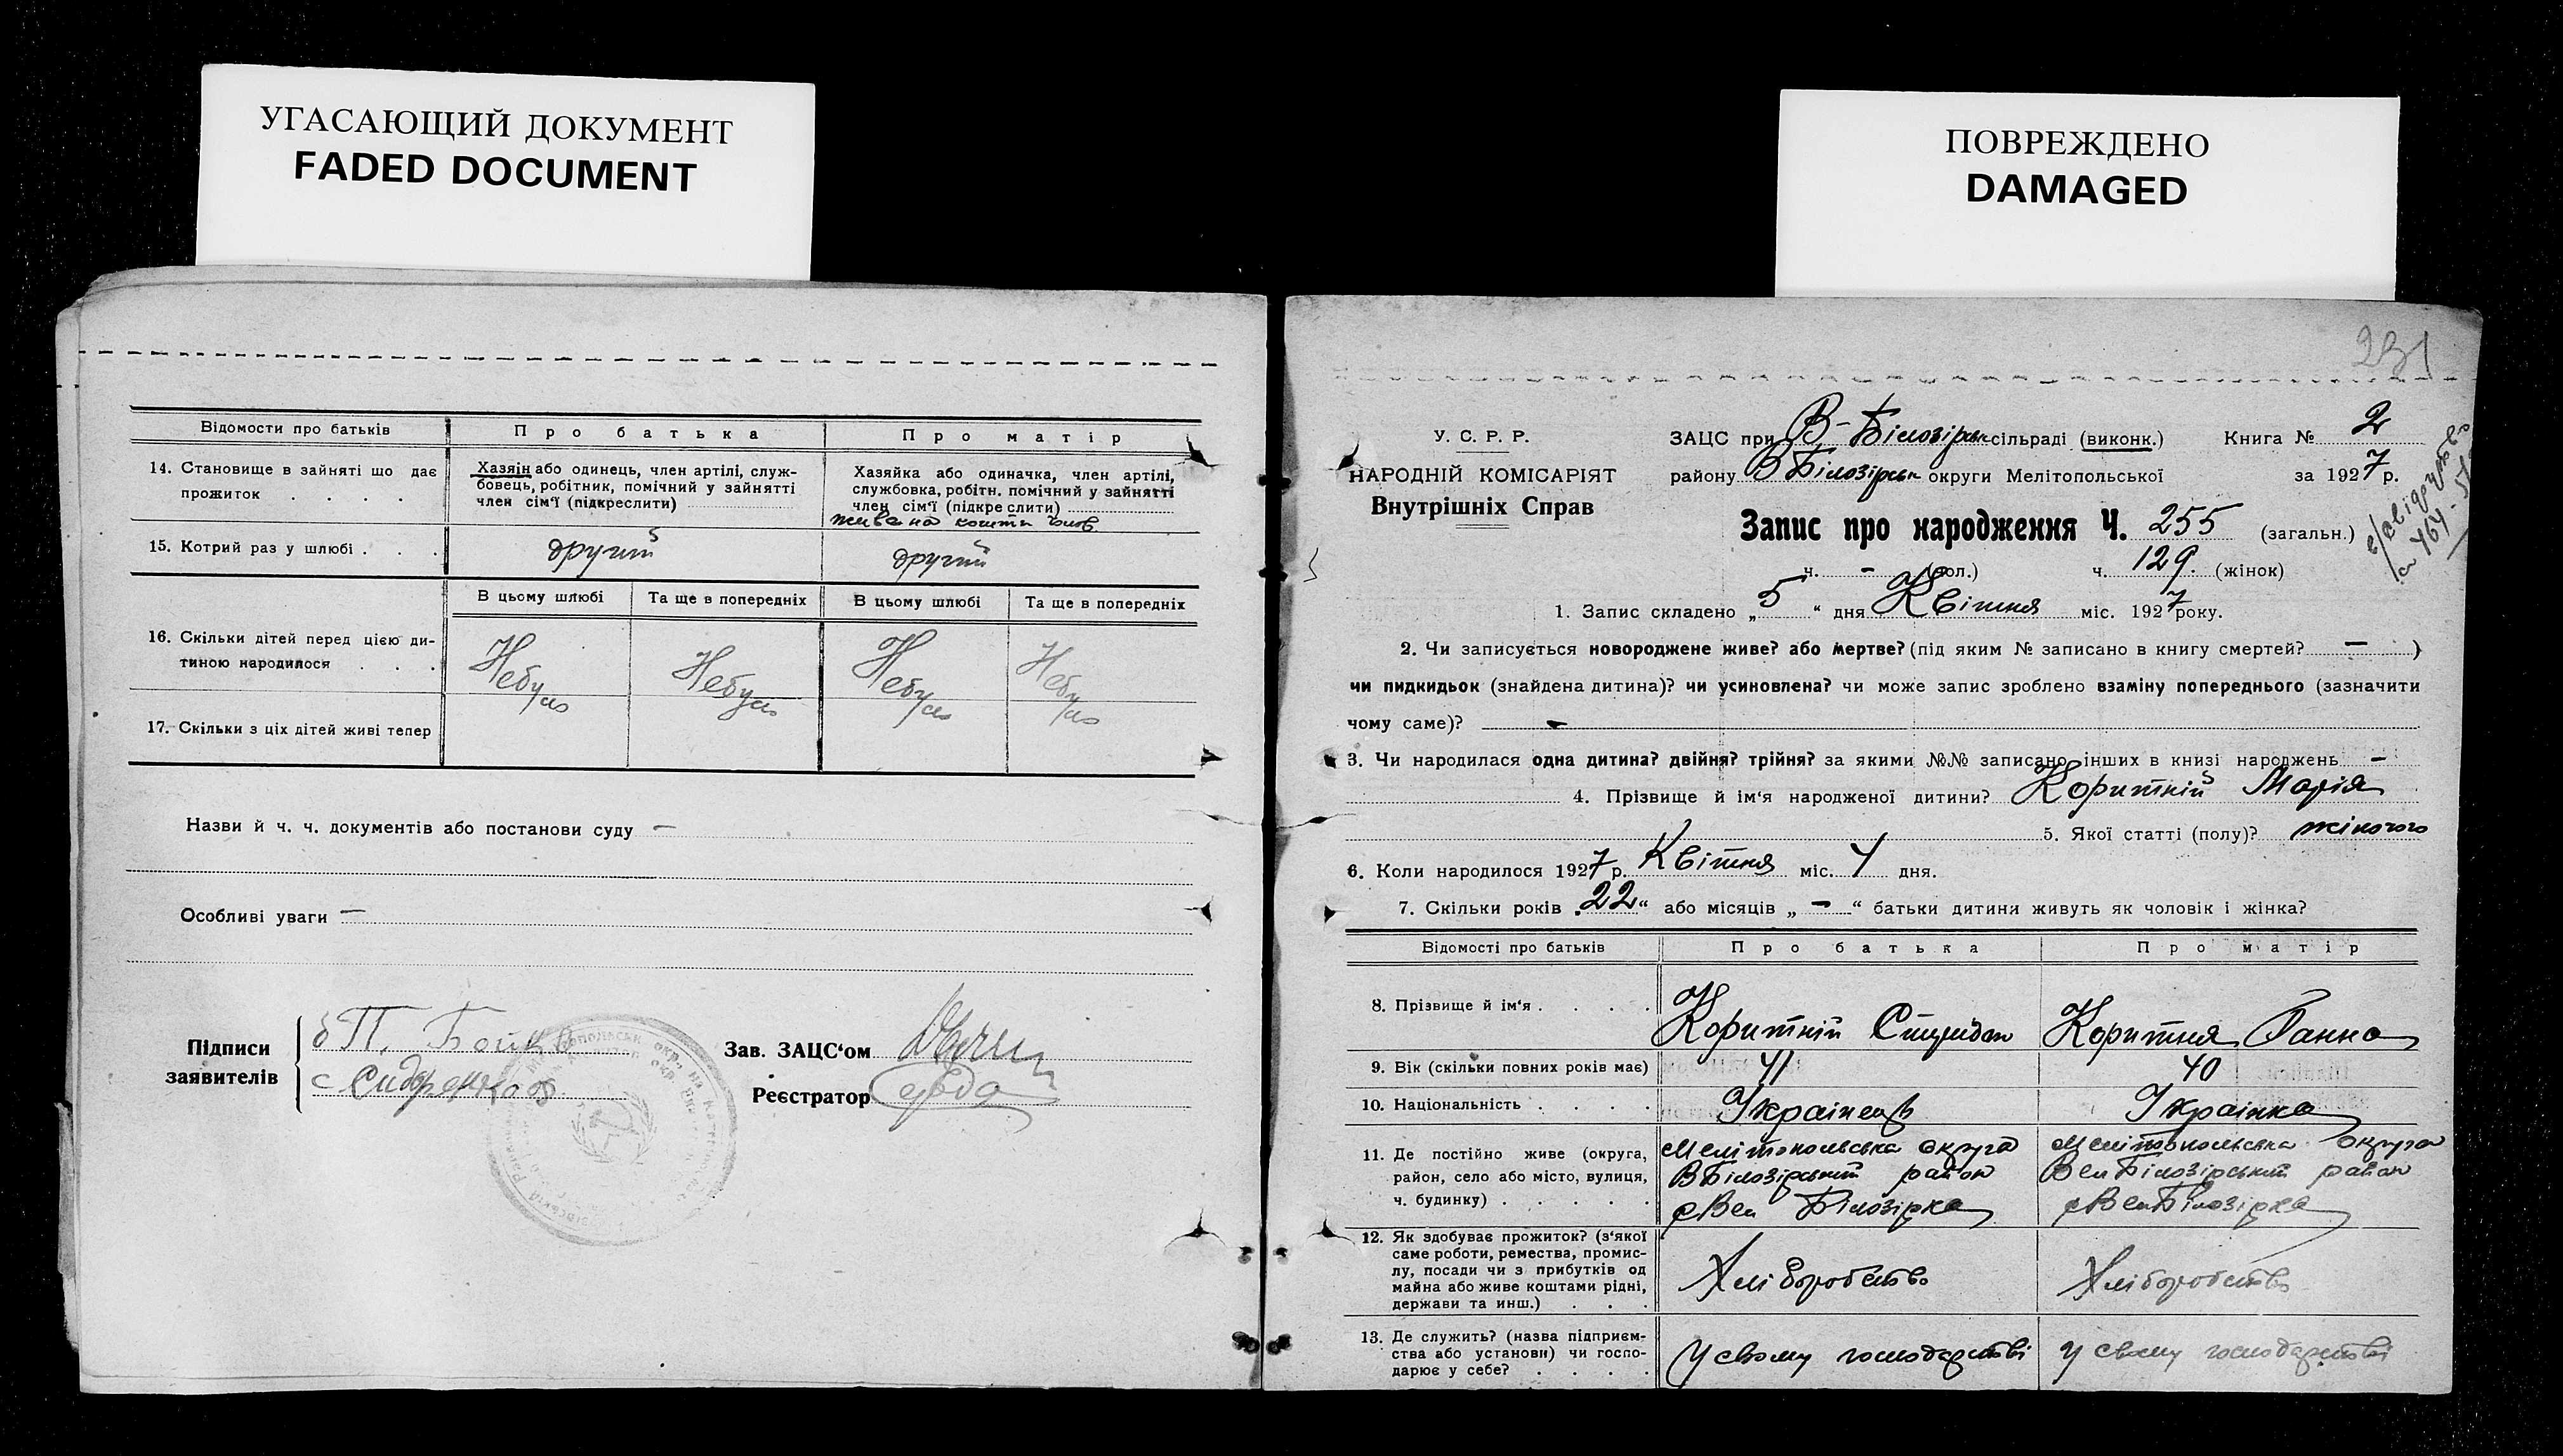 УГАСАЮЩИЙ ДОКУМЕНТ
FADED DOCUMENT
ПОВРЕЖДЕНО
DAMAGED
Відомости про батьків
Про батька
Про матір
14. Становище в зайняті що дає
прожиток . . . .
Хазяін або одинець, член артілі, служ-
бовець, робітник, помічний у зайнятті
член сім'ї (підкреслити)
Хазяйка або одиначка, член артілі,
службовка, робітн. помічний у зайнятті
член сім'ї (підкреслити)
жива на кошти чолов
15. Котрий раз у шлюбі . . .
другий
другий
В цьому шлюбі
Та ще в попередніх
В цьому шлюбі
Та ще в попередніх
16. Скільки дітей перед цією ди-
тиною народилося . . .
Небуло
Небуло
Небуло
Небуло
17. Скільки з ціх дітей живі тепер
Назви й ч. ч. документів або постанови суду —
Особливі уваги —
Підписи
заявителів
Зав. ЗАЦС'ом
Реєстратор
231
У. С. Р. Р.
НАРОДНІЙ КОМІСАРІЯТ
Внутрішніх Справ
ЗАЦС при В-Білозірськ сільраді (виконк.) Книга № 2
району ВБілозірськ округи Мелітопольської за 1927 р.
Запис про народження Ч. 255 (загальн.)
ч. - (чол.) ч. 129. (жінок)
1. Запис складено „5" дня Квітня міс. 1927 року.
2. Чи записується новороджене живе? або мертве? (під яким № записано в книгу смертей? — )
чи пидкидьок (знайдена дитина)? чи усиновлена? чи може запис зроблено взаміну попереднього (зазначити
чому саме)? -
3. Чи народилася одна дитина? двійня? трійня? за якими №№ записано інших в книзі народжень —
4. Прізвище й ім'я народженої дитини? Коритній Марія
5. Якої статті (полу)? жіночого
6. Коли народилося 1927 р. Квітня міс. 4 дня.
7. Скільки років „22" або місяців „—" батьки дитини живуть як чоловік і жінка?
Відомості про батьків
Про батька
Про матір
8. Прізвище й ім'я . . . .
Коритній Спиридон
Коритня Ганна
9. Вік (скільки повних років має)
41
40
10. Національність . . . .
Українець
Українка
11. Де постійно живе (округа,
район, село або місто, вулиця,
ч. будинку) . . . . .
Мелітопольська округа
ВБілозірський район
с Вел Білозірка
Мелітопольська округа
Вел Білозірський район
с Вел Білозірка
12. Як здобуває прожиток? (з'якої
саме роботи, ремества, промис-
лу, посади чи з прибутків од
майна або живе коштами рідні,
держави та инш.) . . .
Хліборобство
Хліборобство
13. Де служить? (назва підприєм-
ства або установи) чи госпо-
дарює у себе? . . . .
У свому господарстві
У свому господарстві